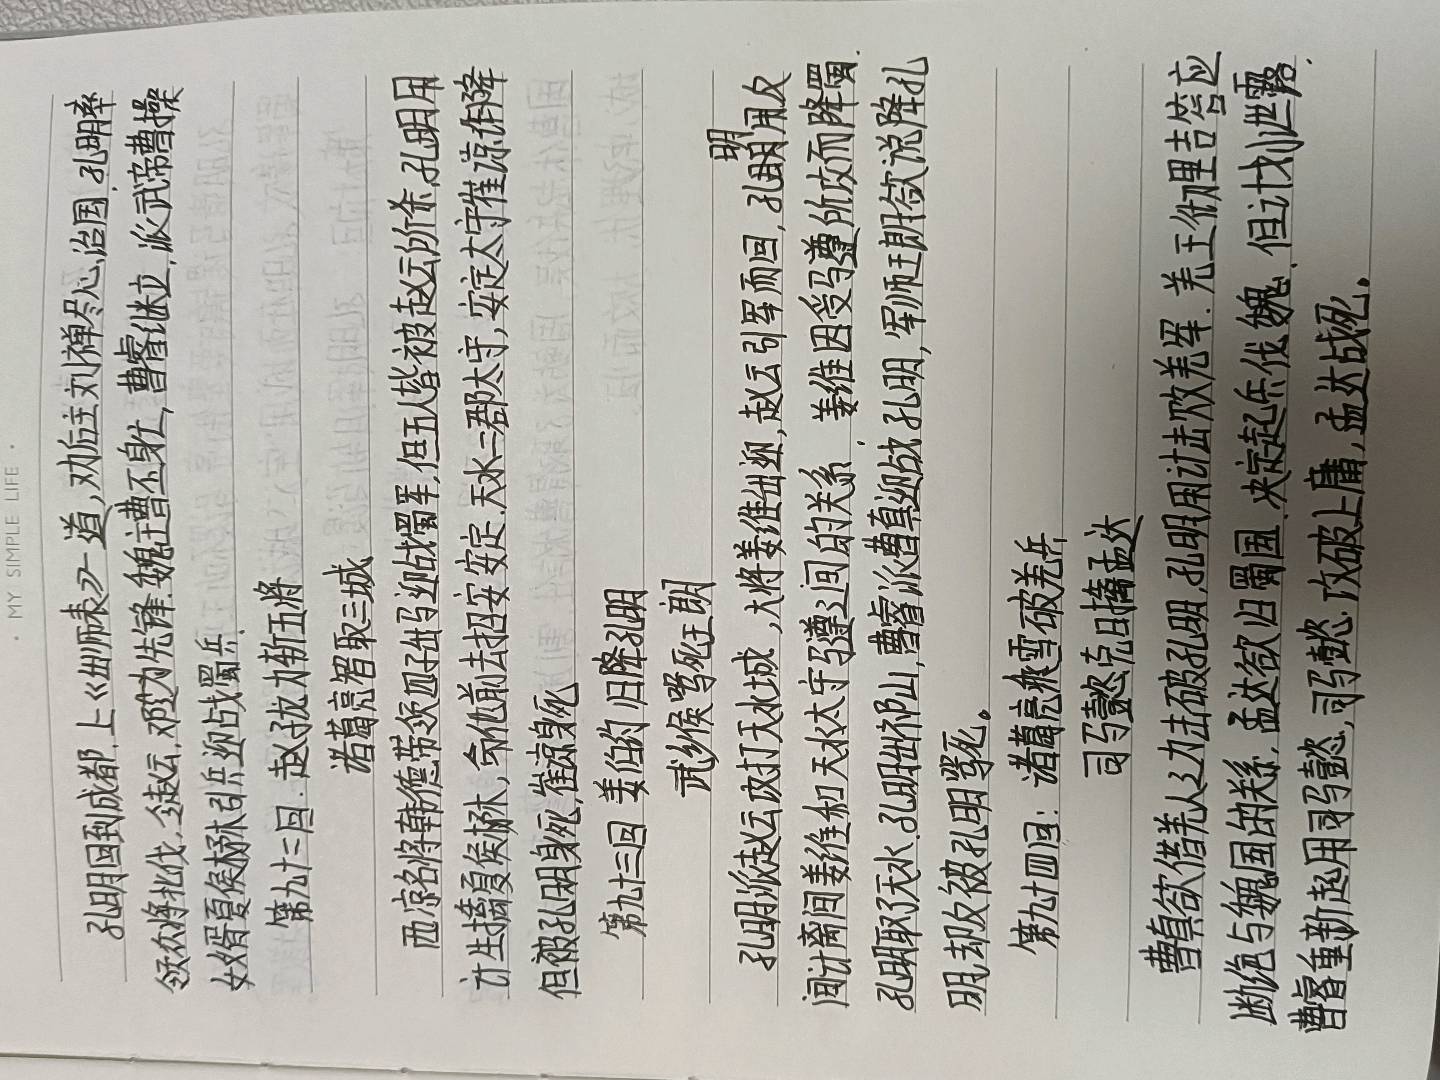 · MY SIMPLE LIFE ·
孔明回到成都,上《出师表》一道,劝后主刘禅尽心治国,孔明率
领众将北伐,令赵云,邓芝为先锋.魏主曹丕身亡,曹睿继立,派武帝曹操
女婿夏侯楙引兵迎战蜀兵.
第九十二回:赵子龙力斩五将
诸葛亮智取三城
西凉名将韩德带领四子出马迎战蜀军,但五人皆被赵云所杀,孔明用
计生擒夏侯楙,命他前去招安安定,天水二郡太守,安定太守崔凉诈降
但被孔明身死,崔凉身死
第九十三回 姜伯约归降孔明
武乡侯骂死王朗
明
孔明派赵云攻打天水城,大将姜维出迎,赵云引军而回,孔明用反
间计离间姜维和天水太守马遵之间的关系.姜维因受马遵所攻而降蜀.
孔明取了天水.孔明出祁山,曹睿派曹真迎战孔明,军师王朗欲说降孔
明,却反被孔明骂死。
第九十四回:诸葛亮乘雪破羌兵
司马懿克日擒孟达
曹真欲借羌人之力击破孔明,孔明用计击败羌军.羌王彻里吉答应
断绝与魏国的关系,孟达欲归蜀国.决定起兵伐魏.但计划泄露.
曹睿重新起用司马懿,司马懿攻破上庸,孟达战死。